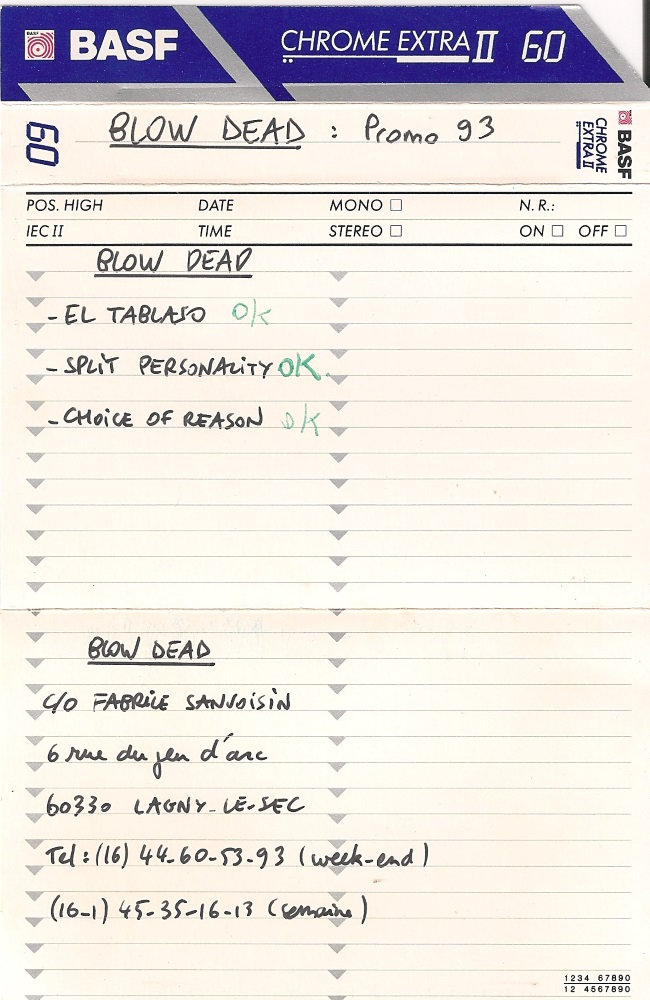 BASF CHROME EXTRA II 60
60 BLOW DEAD : Promo 93 BASF CHROME EXTRA II
POS. HIGH DATE MONO N.R.:
IEC II TIME STEREO ON OFF
BLOW DEAD
- EL TABLASO OK
- SPLIT PERSONALITY OK.
- CHOICE OF REASON OK
BLOW DEAD
C/O FABRICE SANVOISIN
6 rue du jeu d'arc
60330 LAGNY-LE-SEC
Tel : (16) 44-60-53-93 (week-end)
(16-1) 45-35-16-13 (semaine)
1234 67890
12 4567890